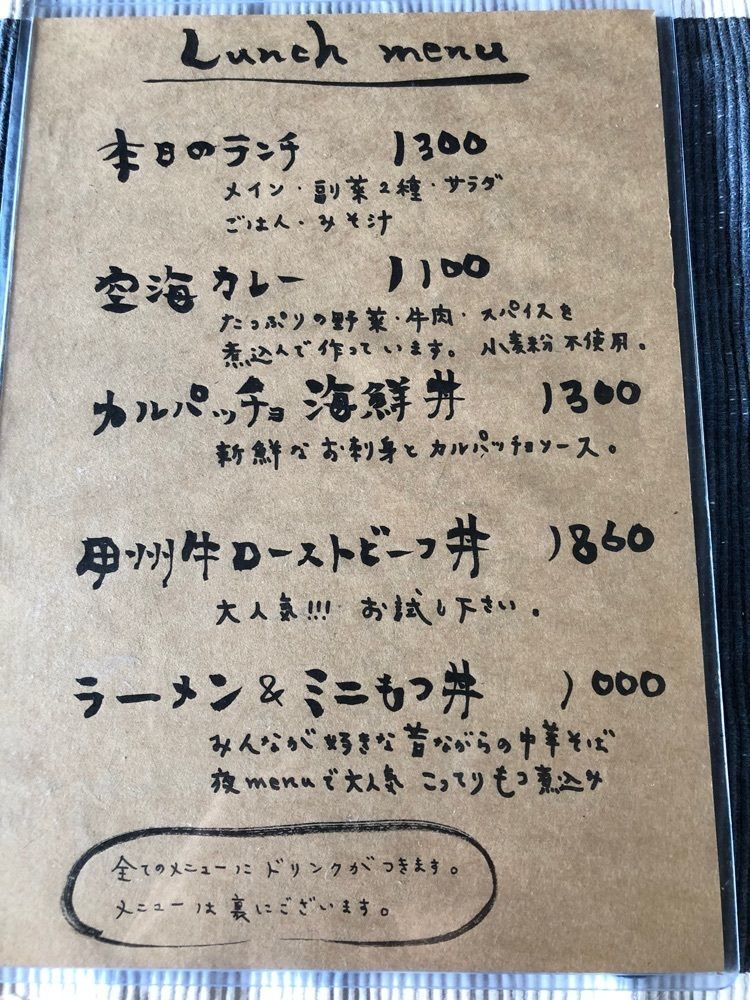 Lunch menu
本日のランチ 1300
メイン・副菜2種・サラダ
ごはん・みそ汁
空海カレー 1100
たっぷりの野菜・牛肉・スパイスを
煮込んで作っています。小麦粉不使用。
カルパッチョ海鮮丼 1300
新鮮なお刺身とカルパッチョソース。
甲州牛ローストビーフ丼 1860
大人気!!! お試し下さい。
ラーメン&ミニもつ丼 1000
みんなが好きな昔ながらの中華そば
夜menuで大人気 こってりもつ煮込み
全てのメニューにドリンクがつきます。
メニューは裏にございます。